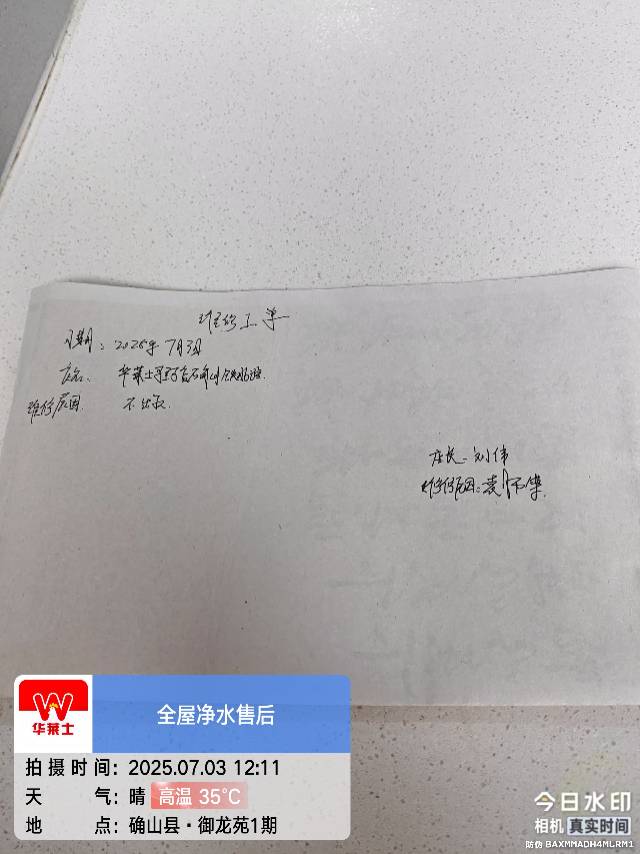 维修工单
日期：2025年7月3日
店名：华莱士
维修原因 不出水
店长：刘伟
维修原因：袁怀
华莱士
全屋净水售后
拍摄时间：2025.07.03 12:11
天气：晴 高温 35℃
地点：确山县·御龙苑1期
今日水印
相机 真实时间
防伪 BAXMMADH4MLRM1